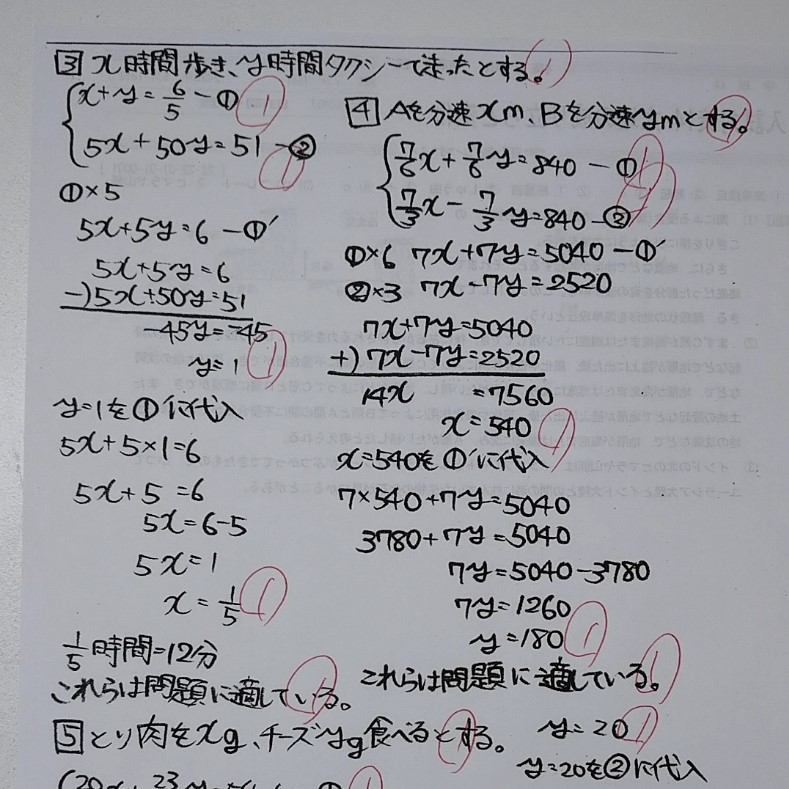 3 x時間歩き、y時間タクシーで走ったとする。
x+y=6/5 - ①
5x+50y=51 - ②
①×5
5x+5y=6 - ①′
5x+5y=6
-)5x+50y=51
-45y=-45
y=1
y=1を①′に代入
5x+5×1=6
5x+5=6
5x=6-5
5x=1
x=1/5
1/5時間=12分
これらは問題に適している。
4 Aを分速xm、Bを分速ymとする。
7/6x+7/6y=840 - ①
7/3x-7/3y=840 - ②
①×6 7x+7y=5040 - ①′
②×3 7x-7y=2520
7x+7y=5040
+)7x-7y=2520
14x =7560
x=540
x=540を①′に代入
7×540+7y=5040
3780+7y=5040
7y=5040-3780
7y=1260
y=180
これらは問題に適している。
5 とり肉をxg、チーズyg食べるとする。
y=20
y=20を②に代入